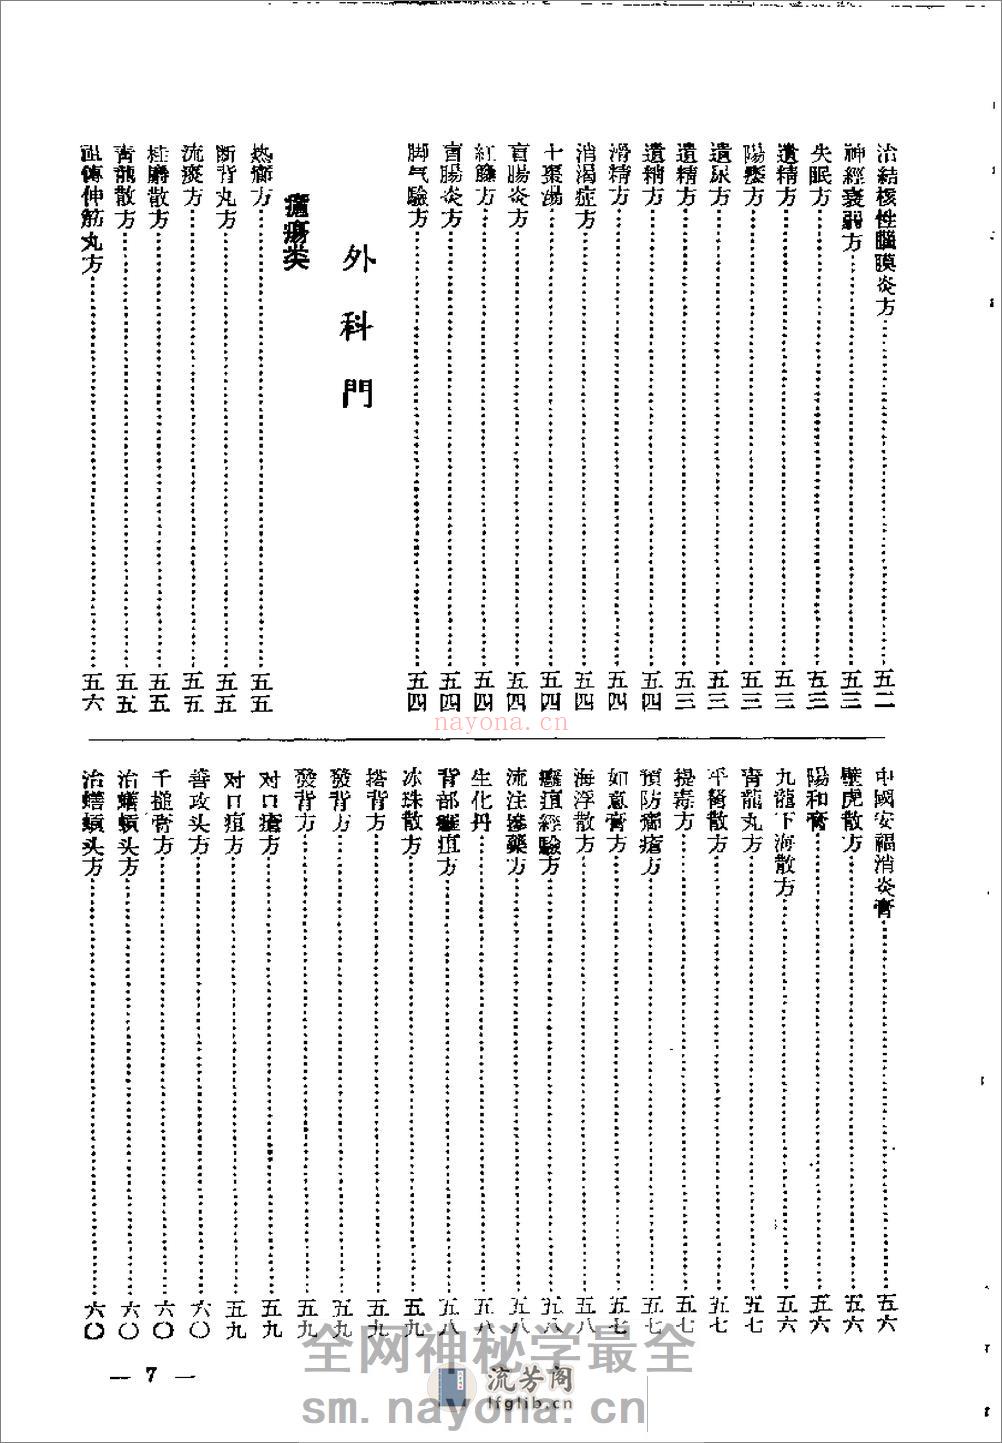 治結核性腦膜炎方……五二
神經衰弱方……五三
失眠方……五三
遺精方……五三
陽痿方……五三
遺尿方……五三
遺精方……五三
遺精方……五四
滑精方……五四
消渴症方……五四
十棗湯……五四
盲腸炎方……五四
紅籐方……五四
盲腸炎方……五四
脚气驗方……五四
外科門
瘡瘍类
热癤方……五五
断背丸方……五五
流痰方……五五
桂麝散方……五五
青龍散方……五五
祖傳伸筋丸方……五六
中國安福消炎膏……五六
壁虎散方……五六
陽和膏……五六
九龍下海散方……五六
青龍丸方……五七
平胬散方……五七
提毒方……五七
預防癤瘡方……五七
如意膏方……五七
海浮散方……五八
癰疽經驗方……五八
流注摻藥方……五八
生化丹……五八
背部癰疽方……五八
冰珠散方……五九
搭背方……五九
發背方……五九
發背方……五九
对口瘡方……五九
对口疽方……五九
善攻头方……六〇
千搥膏方……六〇
治蟮螊头方……六〇
治蟮螊头方……六〇
— 7 —
nayona.cn
全网神秘学最全
流芳阁
lfglib.cn
sm.nayona.cn